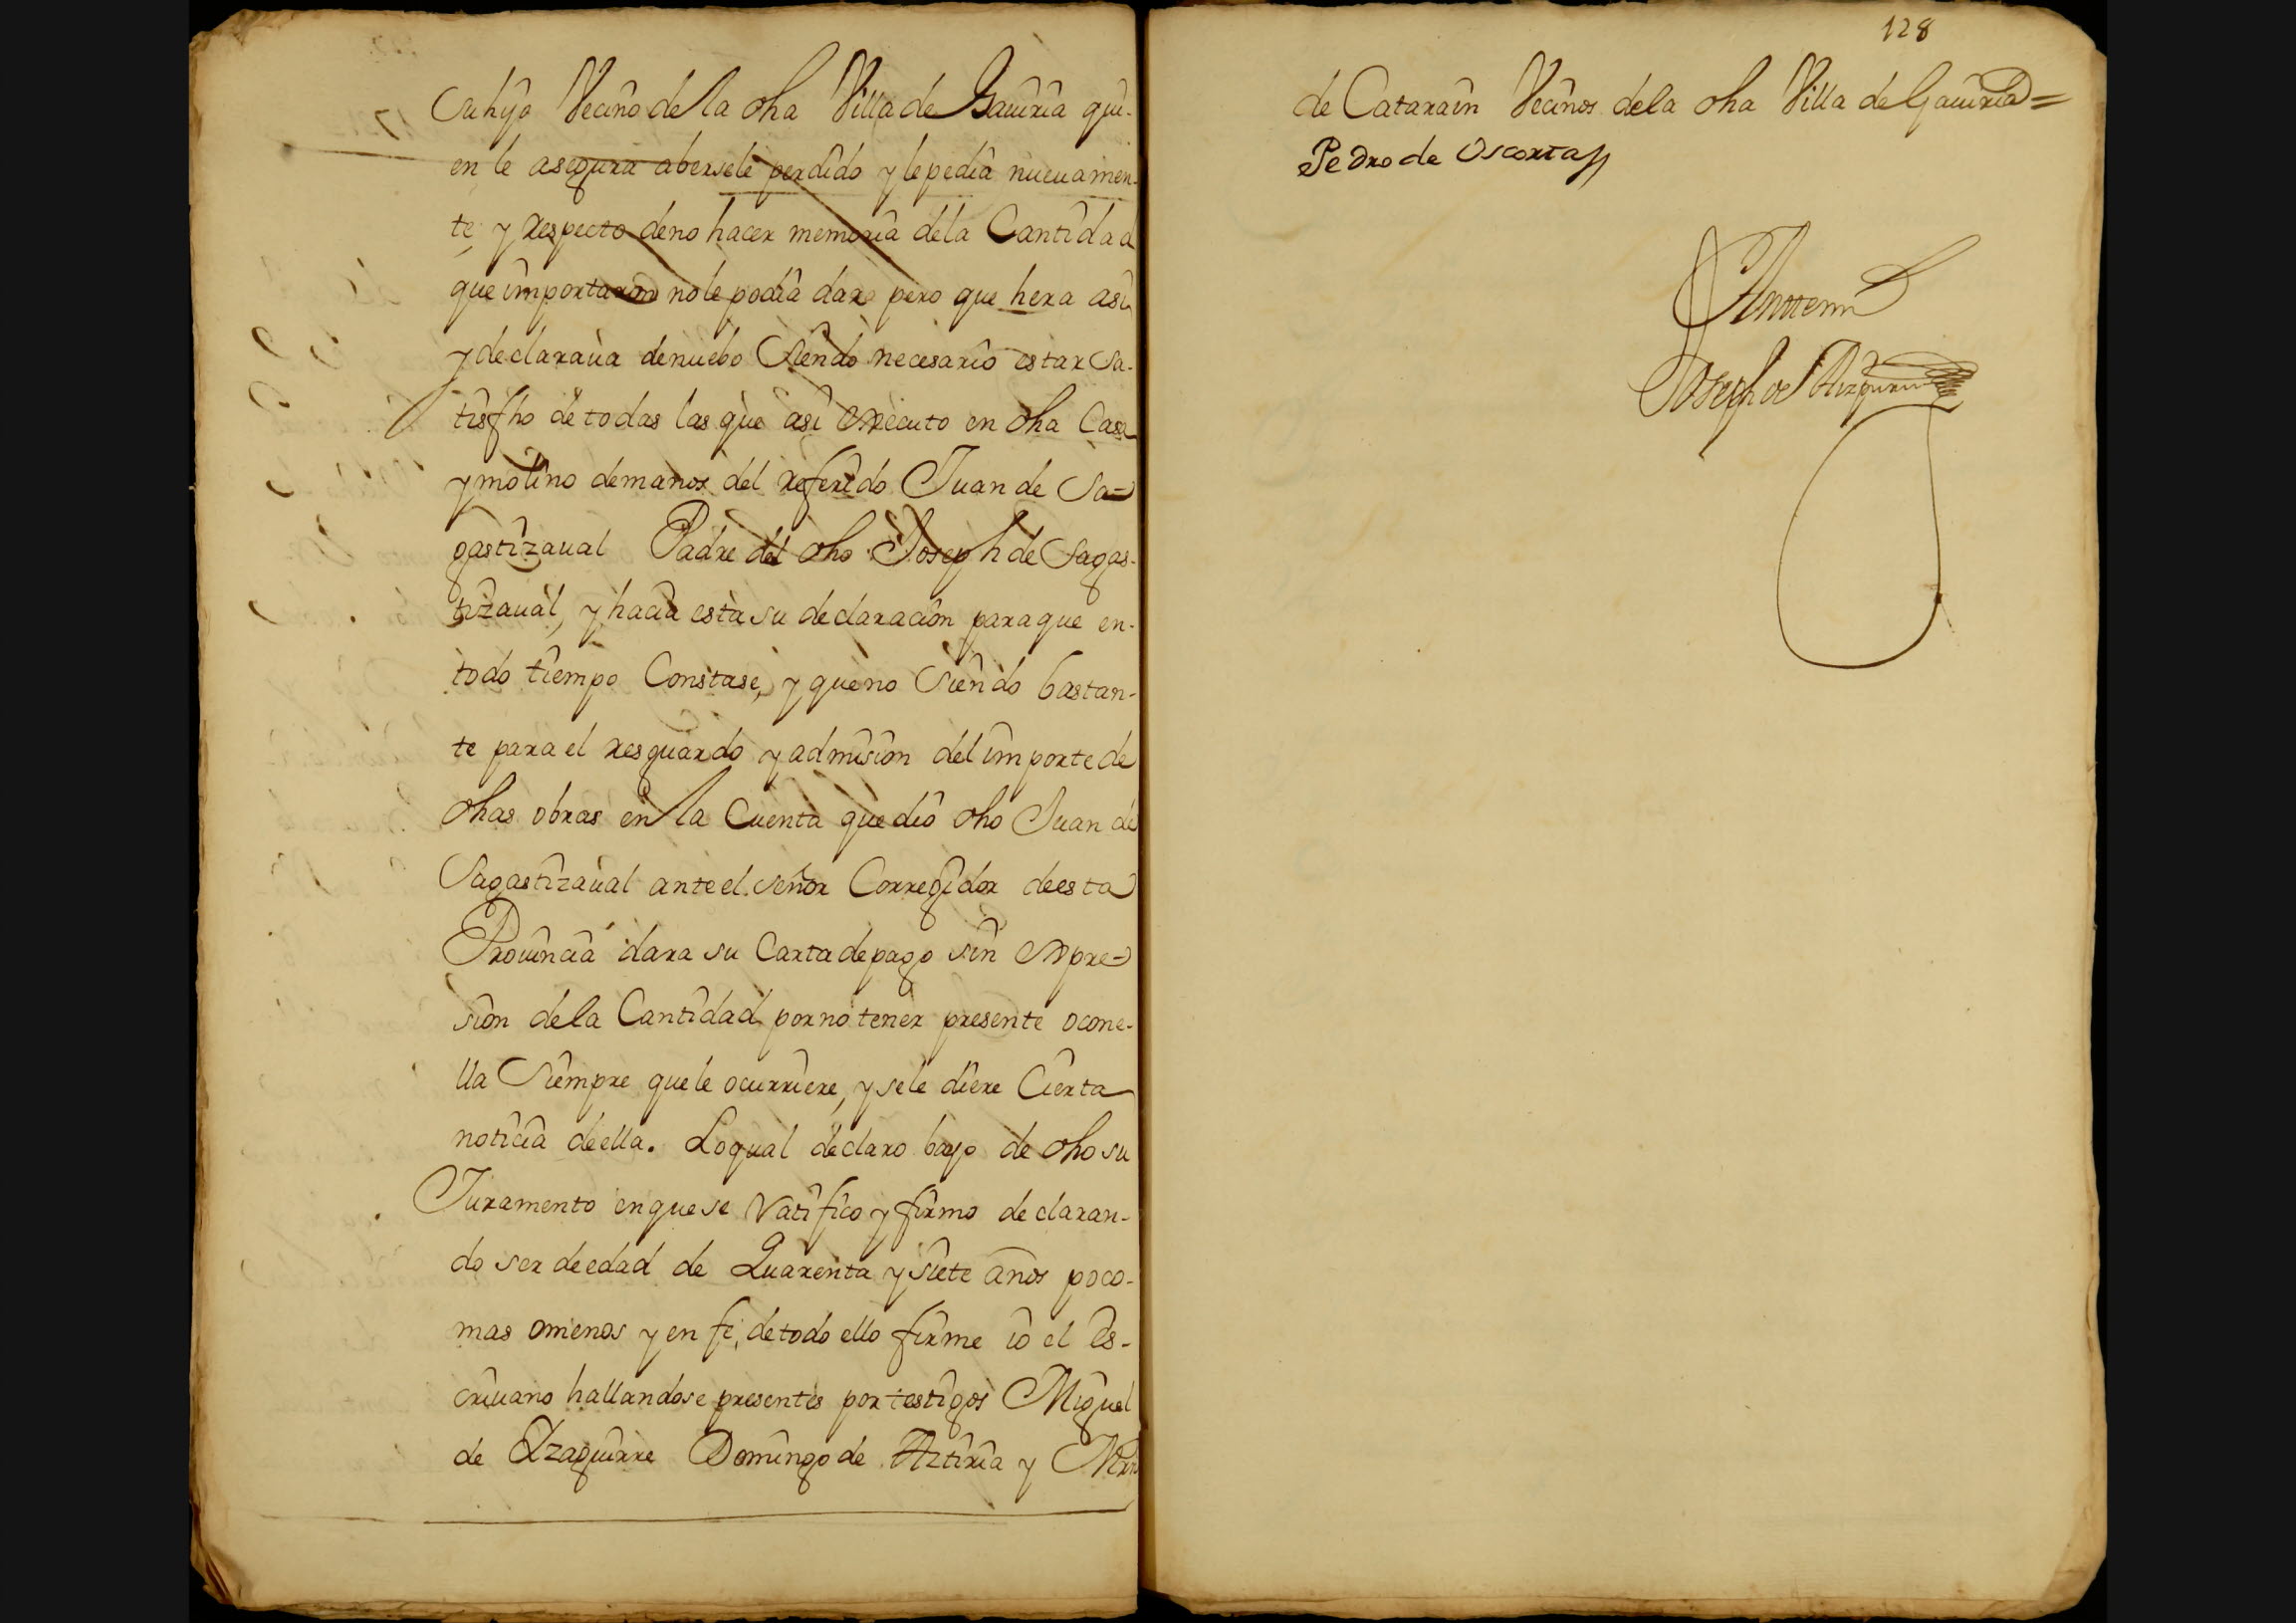 su hijo Vecino de la dha Villa de Gaviria qui-
en le asegura abersele perdido y le pedia nuevamen-
te, y respecto de no hacer memoria de la Cantidad
que importaron no le podia dar pero que hera asi
y declarava de nuebo siendo necesario estar sa-
tisfho de todas las que asi executo en dha Casa
y molino de manos del referido Juan de Sa-
gastizaval Padre del dho Joseph de Sagas-
tizaval, y hacia esta su declaracion para que en-
todo tiempo Constase, y que no siendo bastan-
te para el resguardo y admision del importe de
dhas obras en la Cuenta que dio dho Juan de
Sagastizaval ante el señor Corregidor de esta
Provincia dara su Carta de pago sin expre-
sion de la Cantidad por no tener presente o con e-
lla siempre que le ocurriere, y se le diere Cierta
noticia de ella. Lo qual declaro bajo de dho su
Juramento en que se Ratifico y firmo declaran-
do ser de edad de Quarenta y siete años poco-
mas o menos y en fe, de todo ello firme io el Es-
crivano hallandose presentes por testigos Miguel
de Yzaguirre Domingo de Aztiria y
128
de Catarain Vecinos de la dha Villa de Gaviria=
Pedro de Oscorta
Antte mi
Joseph de Aizpuru